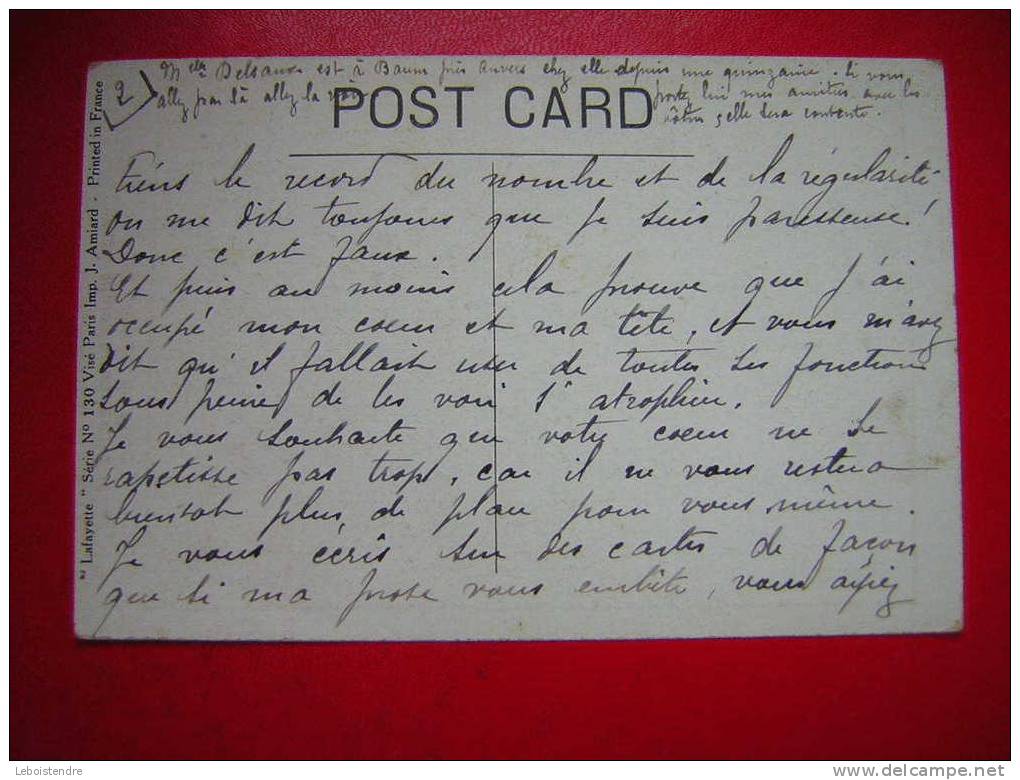 2
Melle Delsaux est à Baum près Anvers chez elle depuis une quinzaine. Si vous
allez par là allez la voir
portez lui mes amitiés avec les
vôtres, elle sera contente.
POST CARD
Tiens le record du nombre et de la régularité
on me dit toujours que je suis paresseuse!
Donc c'est faux.
Et puis au moins cela prouve que j'ai
occupé mon coeur et ma tête, et vous m'avez
dit qu'il fallait user de toutes ses fonctions
sous peine de les voir s'atrophier.
Je vous souhaite que votre coeur ne se
rapetisse pas trop, car il ne vous restera
bientot plus de place pour vous même.
Je vous écris sur des cartes de façon
que si ma prose vous embête, vous ayiez
"Lafayette" Série No 130 Visé Paris Imp. J. Amiard - Printed in France
Leboistendre
www.delcampe.net